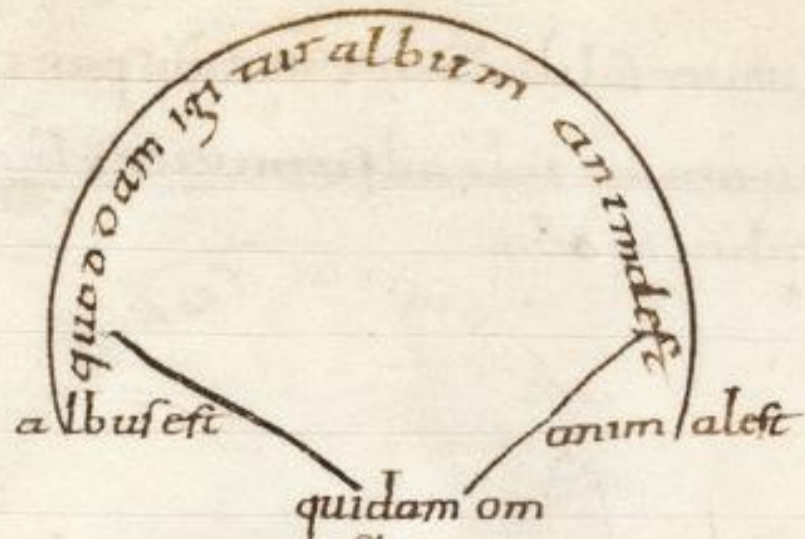 quoddam igitur album animal est
albus est animal est
quidam om